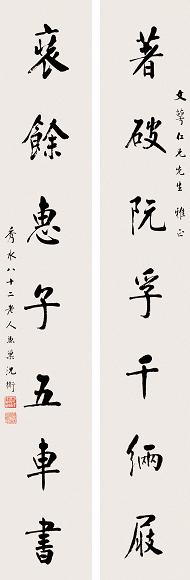 文萼仁兄先生 雅正
著破阮孚千緉屐
褱餘惠子五車書
秀水八十二老人兼巢沈衛